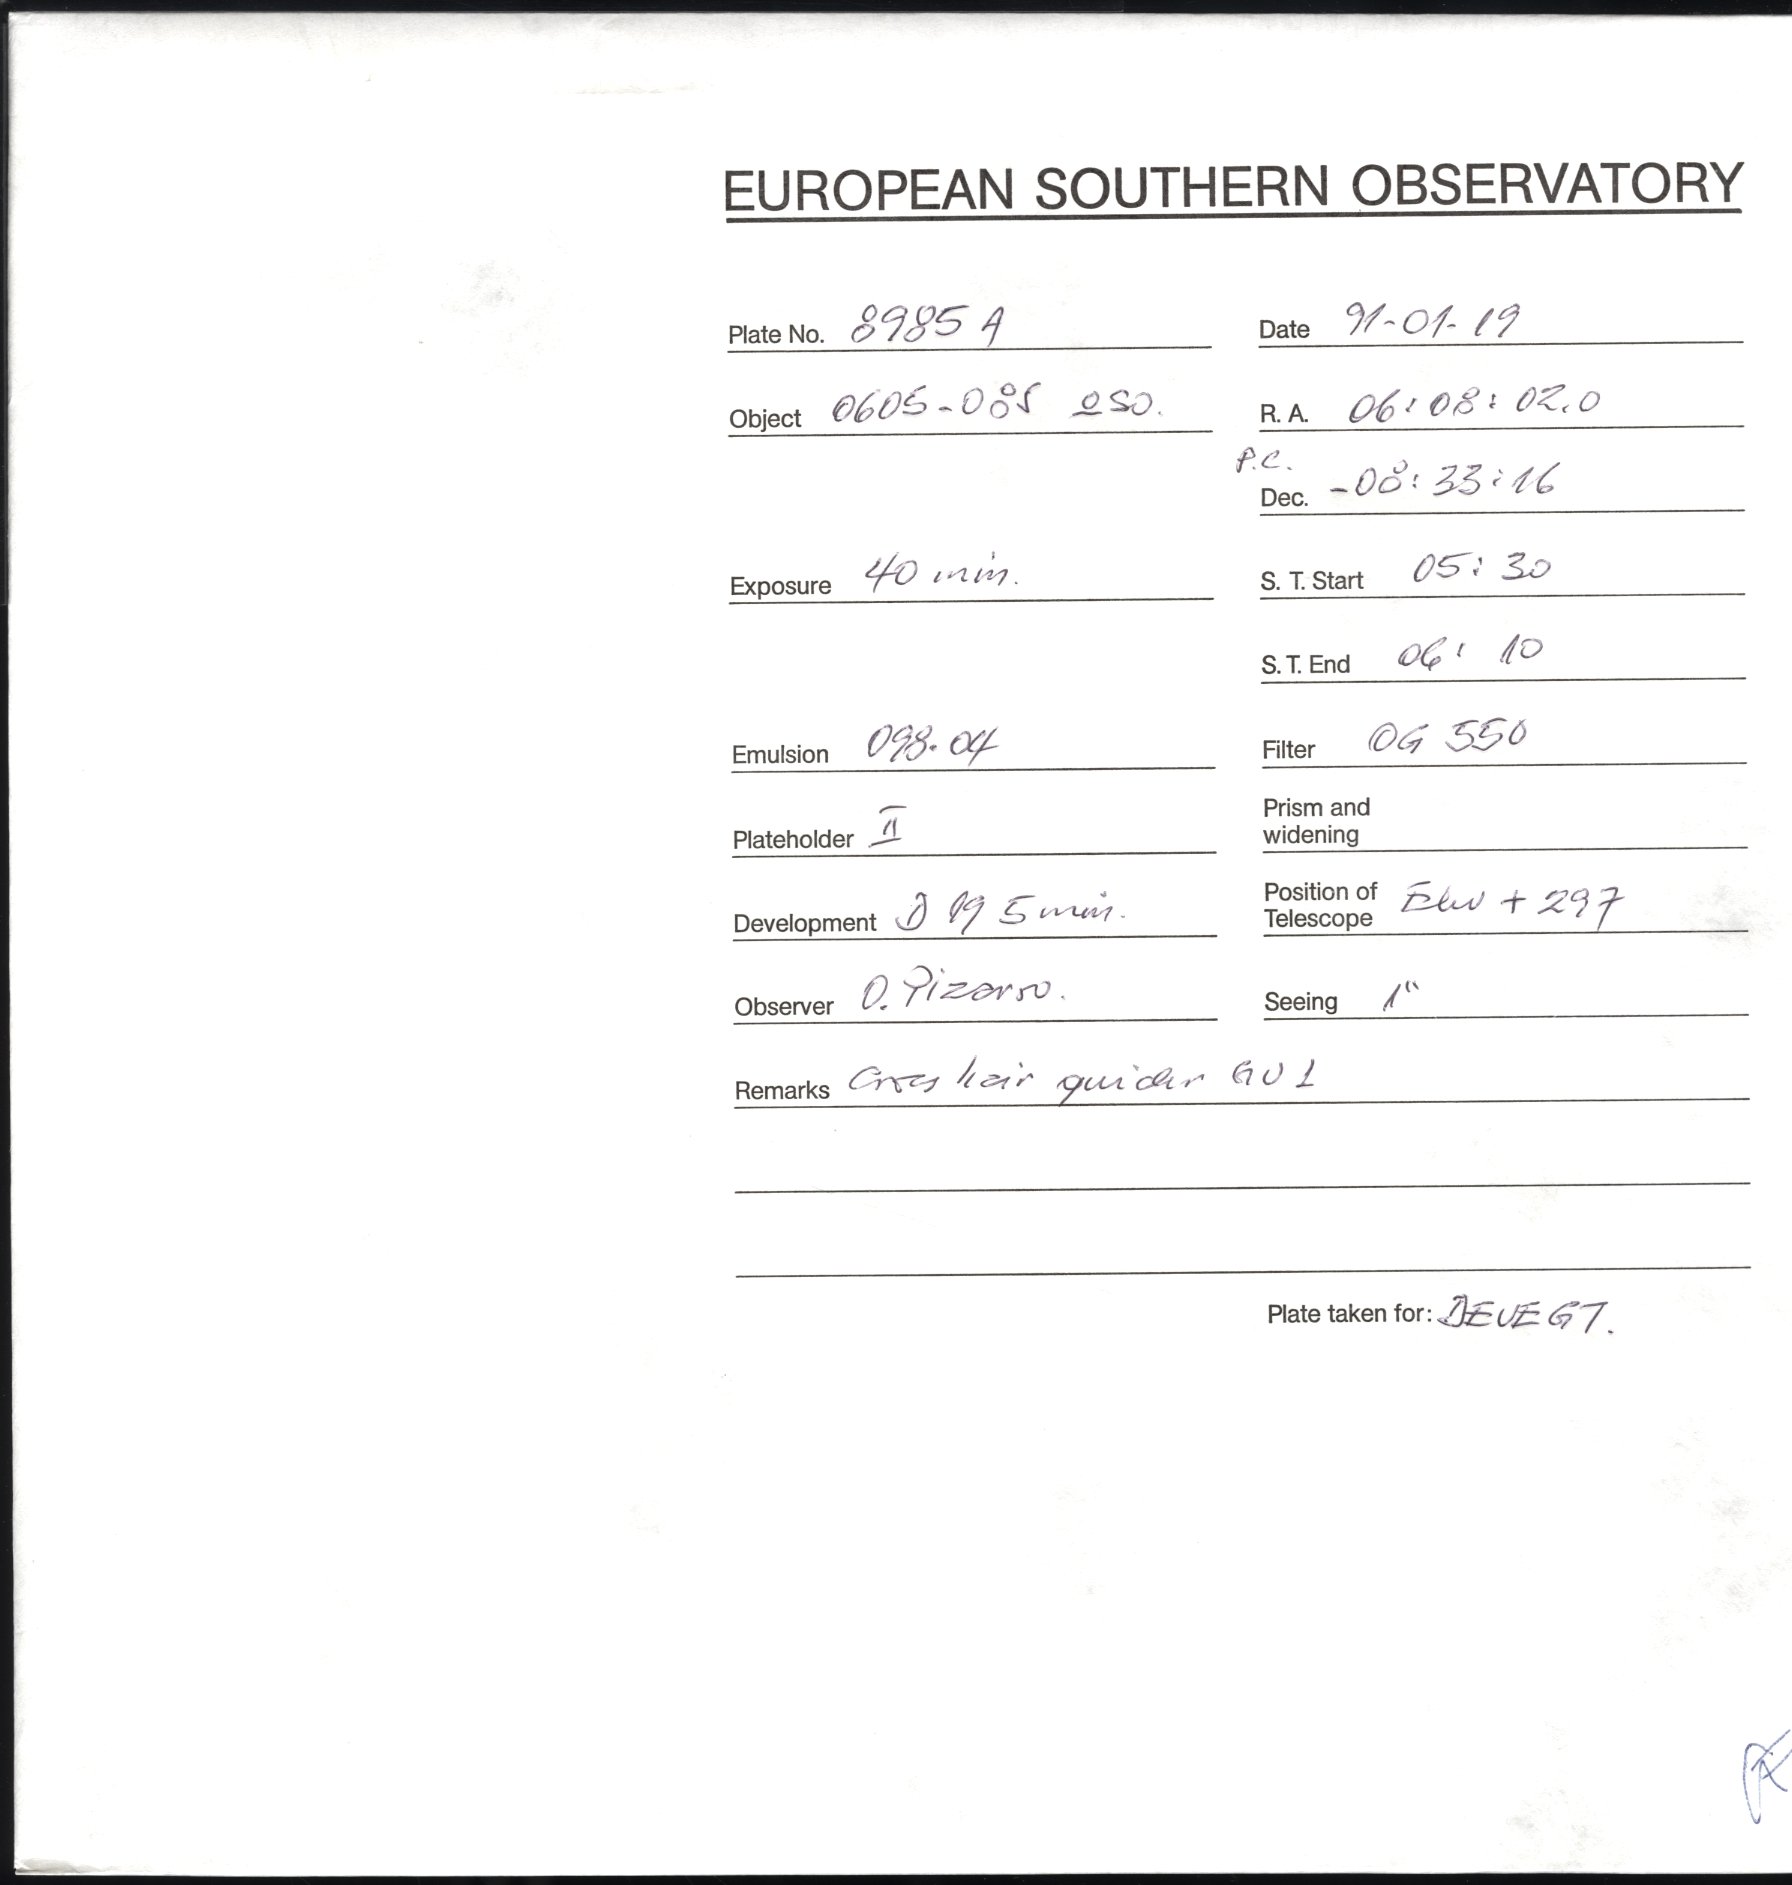 EUROPEAN SOUTHERN OBSERVATORY
Plate No. 8985 A Date 91-01-19
Object 0605-085 QSO. R. A. 06:08:02.0
P.C.
Dec. -08:33:16
Exposure 40 min. S. T. Start 05:30
S. T. End 06: 10
Emulsion 098-04 Filter OG 550
Plateholder II Prism and
widening
Development D 19 5 min. Position of
Telescope + 297
Observer O. Pizarro. Seeing 1"
Remarks Cross hair guider GU 1
Plate taken for: DEVEGT.